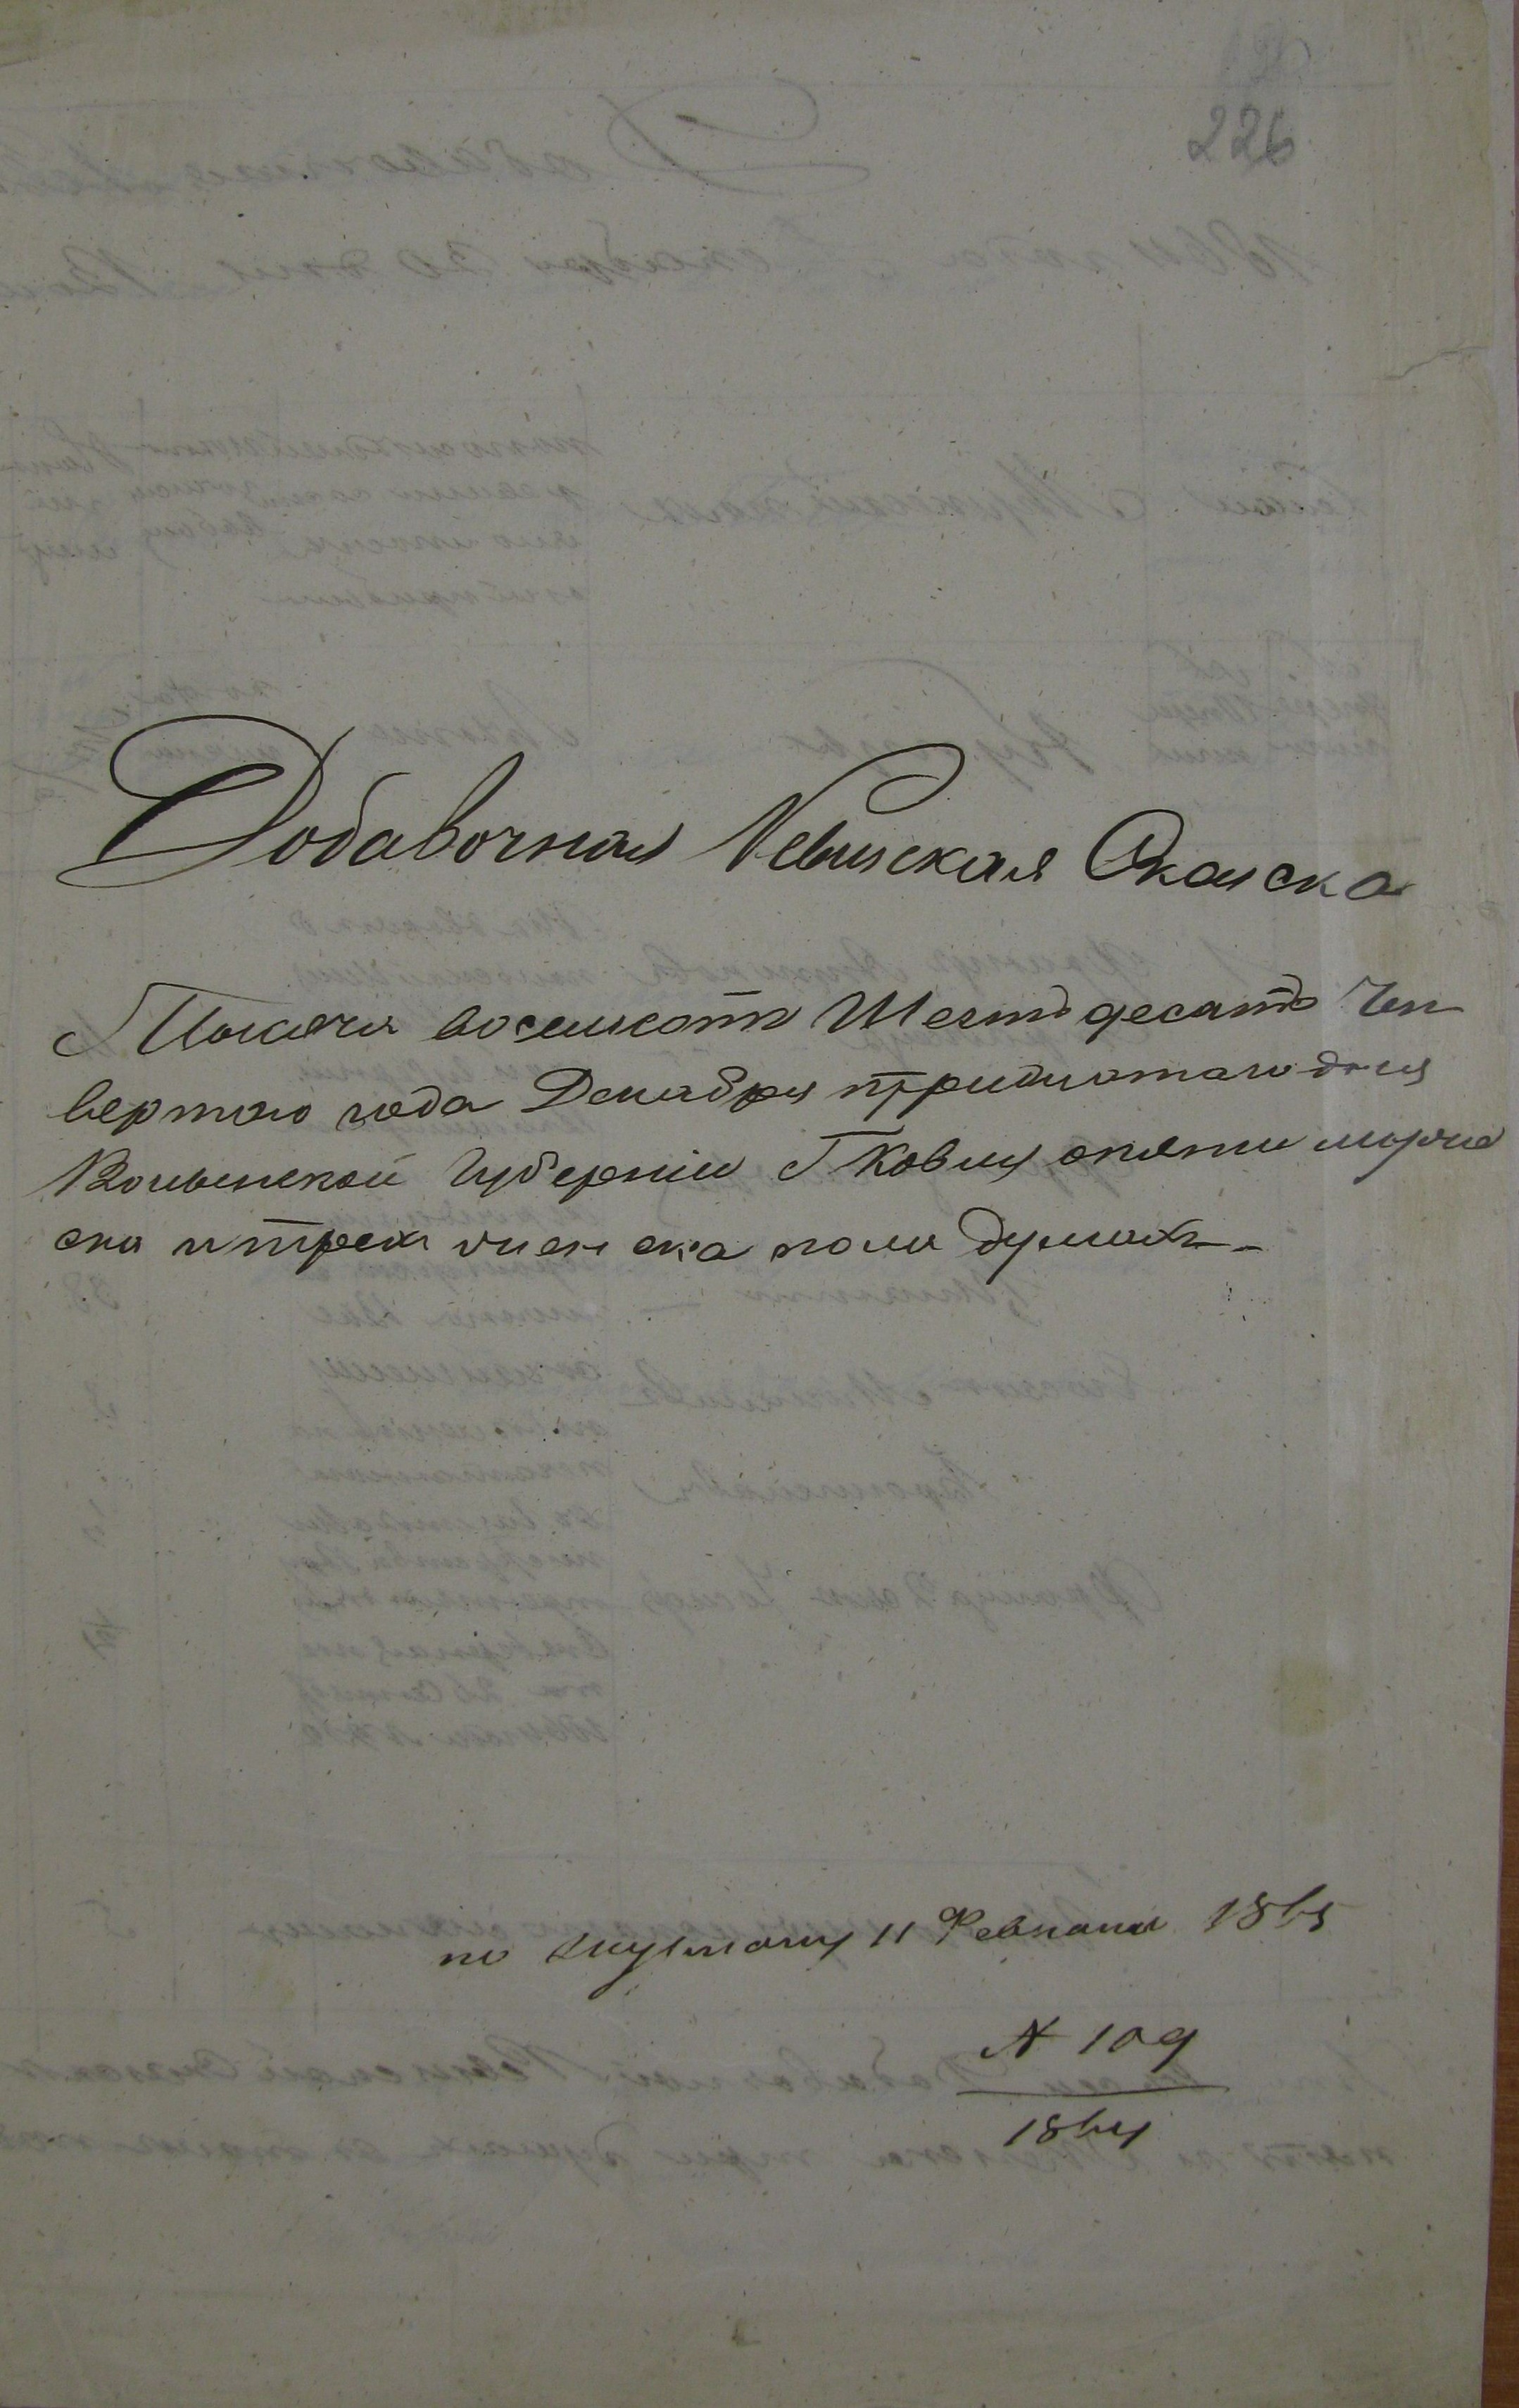 226
Добавочная Ревизская Сказка
Тысяча восемсотъ Шестъдесятъ Чет
вертаго года Декабря тридцатаго дня
Волынской Губерніи Г Ковля о пяти мужес
ска и трех женска пола душахъ
по 11 Февраля 1865
N 109
1864